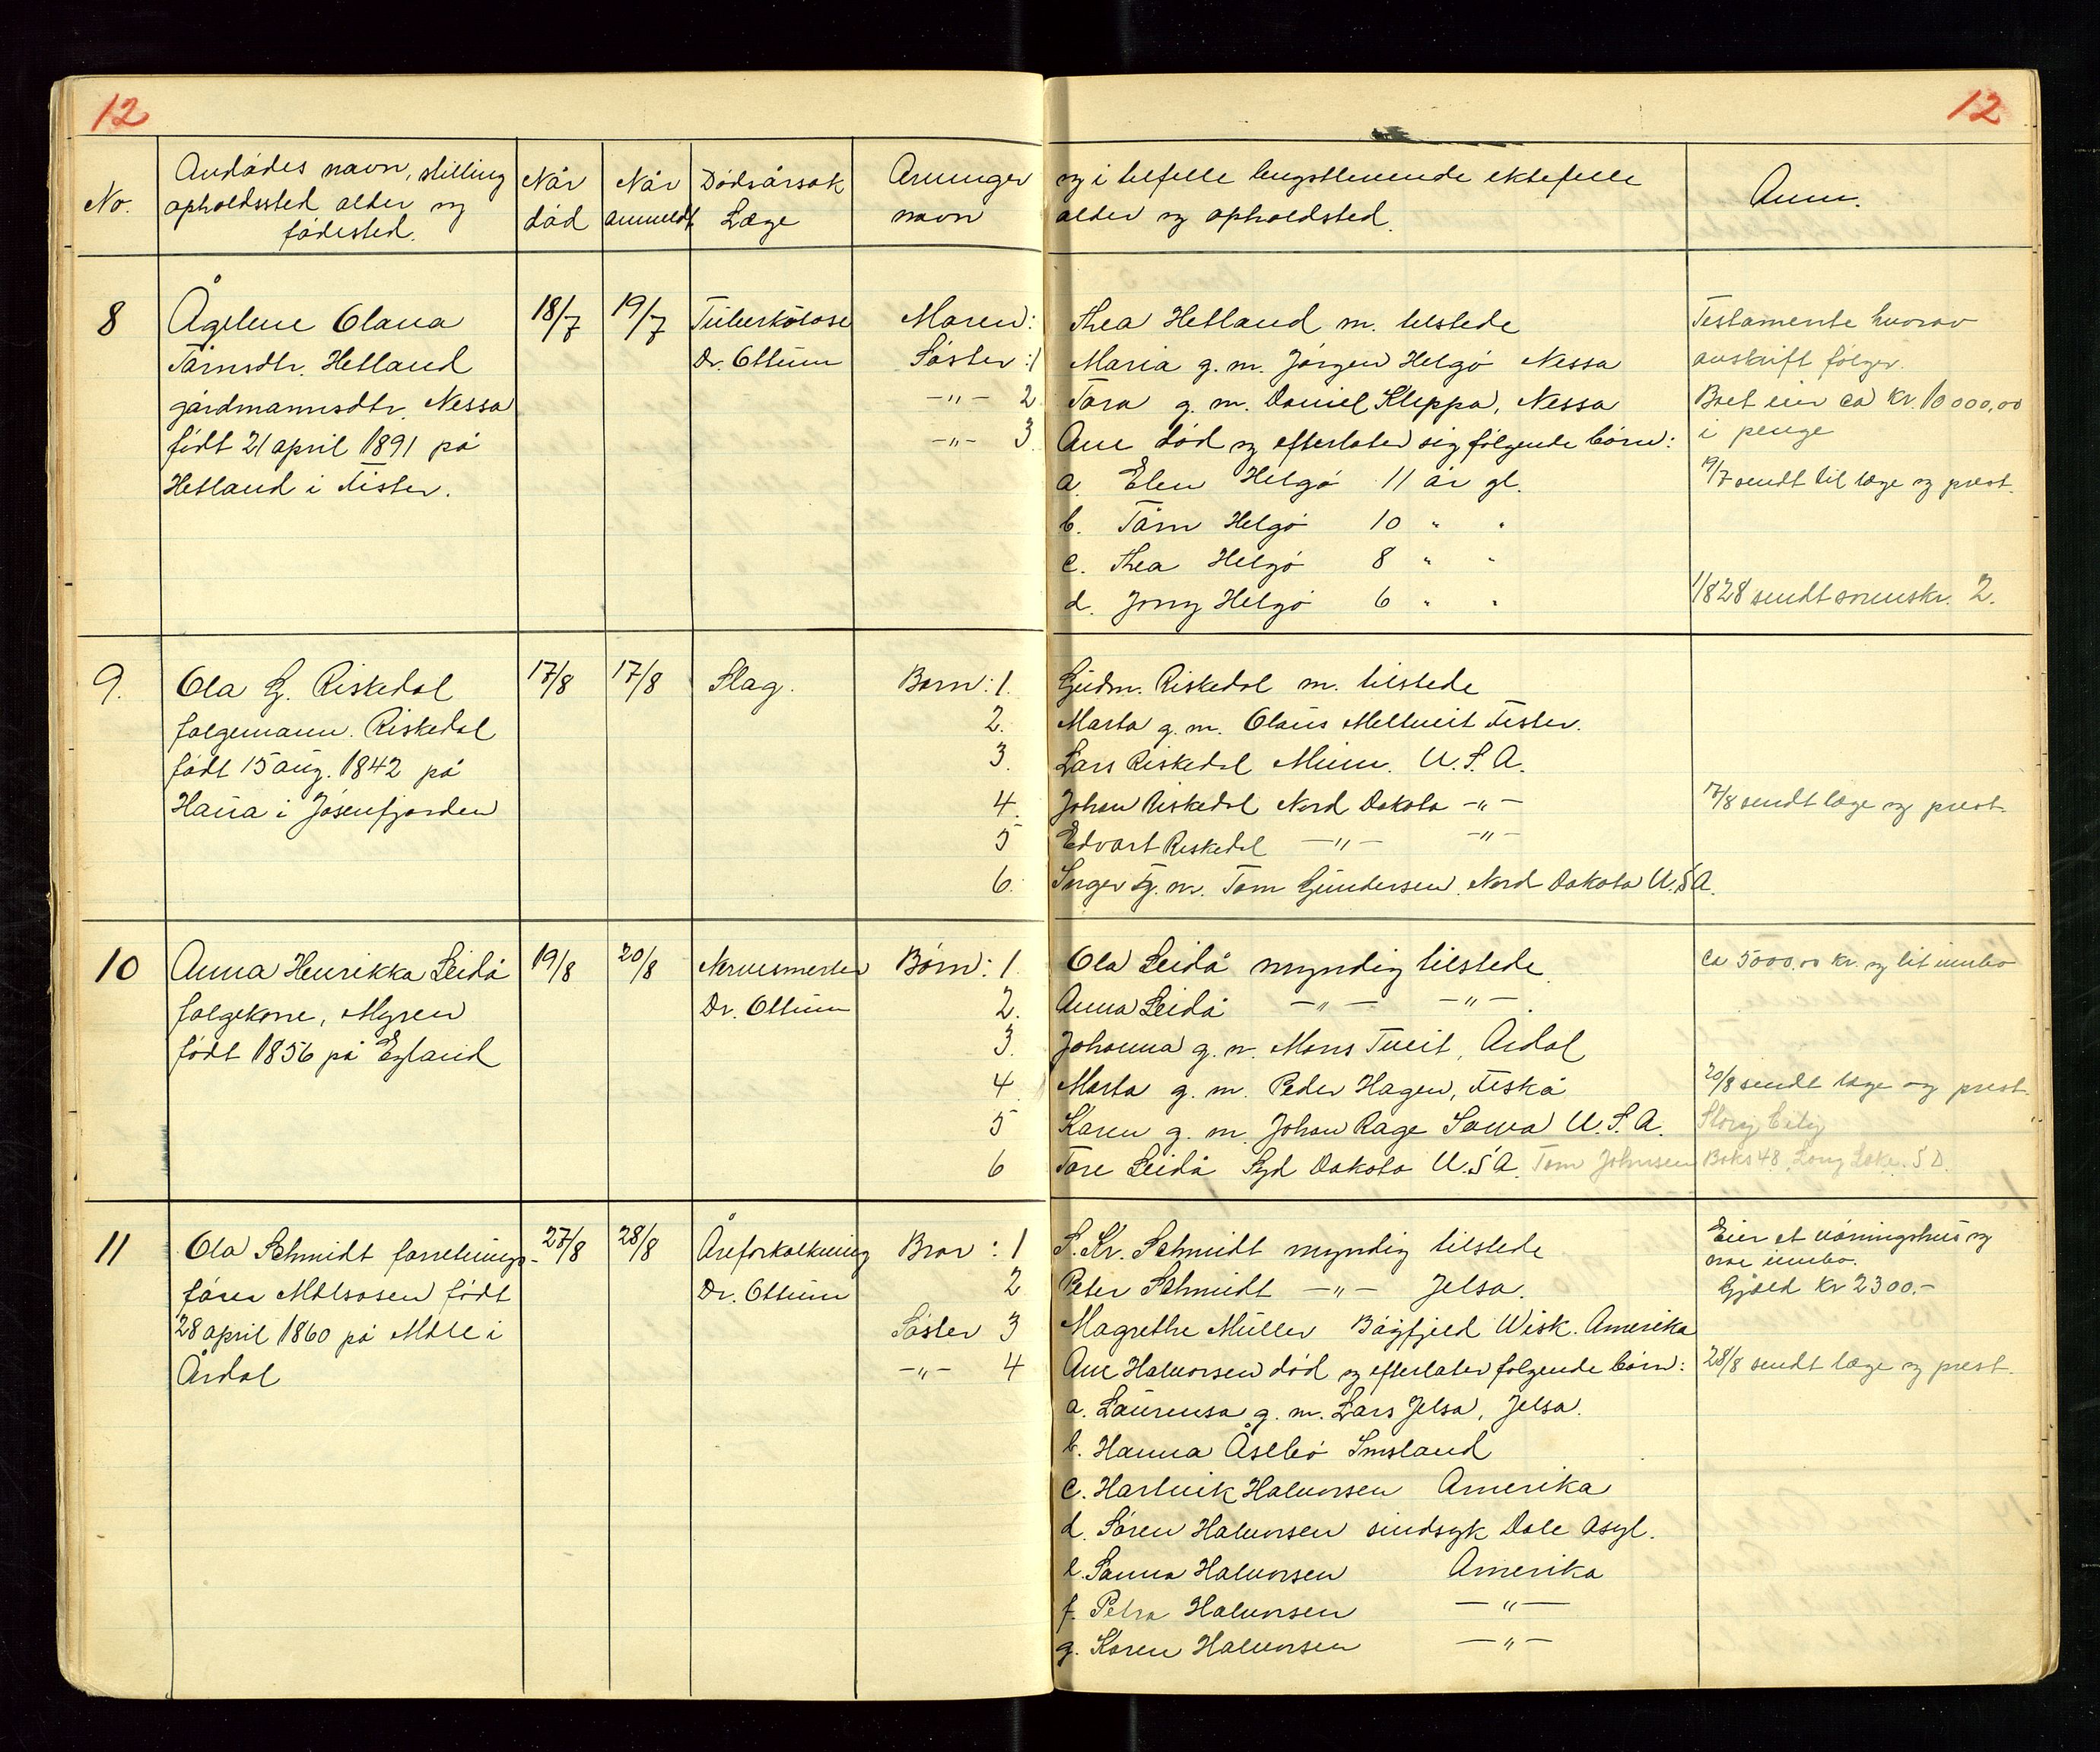 12
12
No.
Avdødes navn, stilling
opholdssted alder og
fødested.
Når
død
Når
anmeldt
Dødsårsak
Læge
Arvinger
navn
og i tilfelle lengstlevende ektefelle
alder og opholdsted.
Anm.
8
Ågeline Olava
Tormsdtr. Hetland
gårdmannsdtr. Nessa
født 21 april 1891 på
Hetland i Fister.
18/7
19/7
Tuberkulose
Dr. Ottum
Moren:
Søster :1
-"- 2
-"- 3
Thea Hetland m. tilstede
Maria g. m. Jørgen Helgø Nessa
Tora g. m. Daniel Kleppa, Nessa
Ane død og efterlater sig følgende børn:
a. Elen Helgø 11 år gl.
b. Tårn Helgø 10 " "
c. Thea Helgø 8 " "
d. Jony Helgø 6 " "
Testamente hvorav
avskrift følger.
Boet eier ca kr. 10000,00
i penge
19/7 sendt til læge og prest.
1/8 28 sendt sorenskr. 2.
9.
Ola G. Riskedal
folgemann. Riskedal
født 15 aug. 1842 på
Hauа i Jøsenfjorden
17/8
17/8
Slag.
Born: 1.
2.
3.
4.
5
6.
Gudm. Riskedal m. tilstede
Marta g. m. Olaus Meltveit Fister.
Lars Riskedal Minn. U.S.A.
Johan Riskedal Nord Dakota -"-
Edvart Riskedal -"- -"-
Inger G. m. Tom Gundersen Nord Dakota U.S.A.
17/8 sendt læge og prest.
10
Anna Henrikka Leidå
folgekone, Myren
født 1856 på Egland
19/8
20/8
Nervesmerter
Dr. Ottum
Børn: 1
2.
3.
4.
5
6
Ola Leidå myndig tilstede
Anna Leidå -"- -"-
Johanna g. m. Mons Tveit, Årdal
Marta g. m. Peder Hagen, Fiskå
Karen g. m. Johan Rage Iowa U.S.A.
Tore Leidå Syd Dakota U.S.A. Tom Johnsen Boks 48 Long Lake. S D.
ca 5000,00 kr. og lit innbo
20/8 sendt læge og prest.
Story City
11
Ola Schmidt forretnings-
fører Mølsosen født
28 april 1860 på Mæle i
Årdal
27/8
28/8
Åreforkalkning
Dr. Ottum
Bror : 1
2
Søster 3
-"- 4
S. Kr. Schmidt myndig tilstede
Peter Schmidt -"- Jelsa.
Magrethe Müller Wisk. Amerika
Ane Halvorsen død og efterlater følgende børn:
a. Laurensa g. m. Lars Jelsa, Jelsa.
b. Hanna Åsebø Imsland
c. Hartvik Halvorsen Amerika
d. Søren Halvorsen sindsyk Dale Asyl.
e. Sanna Halvorsen Amerika
f. Petra Halvorsen -"-
g. Karen Halvorsen -"-
Eier et våningshus og
noe innbo.
Gjæld kr 2300.-
28/8 sendt læge og prest.